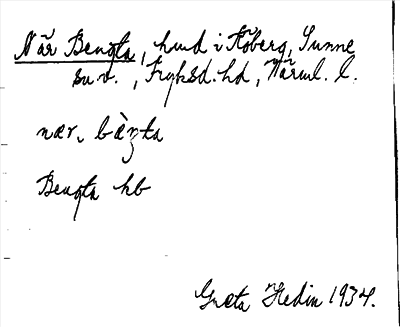 När Bengta, hmd i Höberg, Sunne
sn., Fryksd. hd, Värml. l.
nær, bæ̀ŋta
Bengta hb
Greta Hedin 1934.